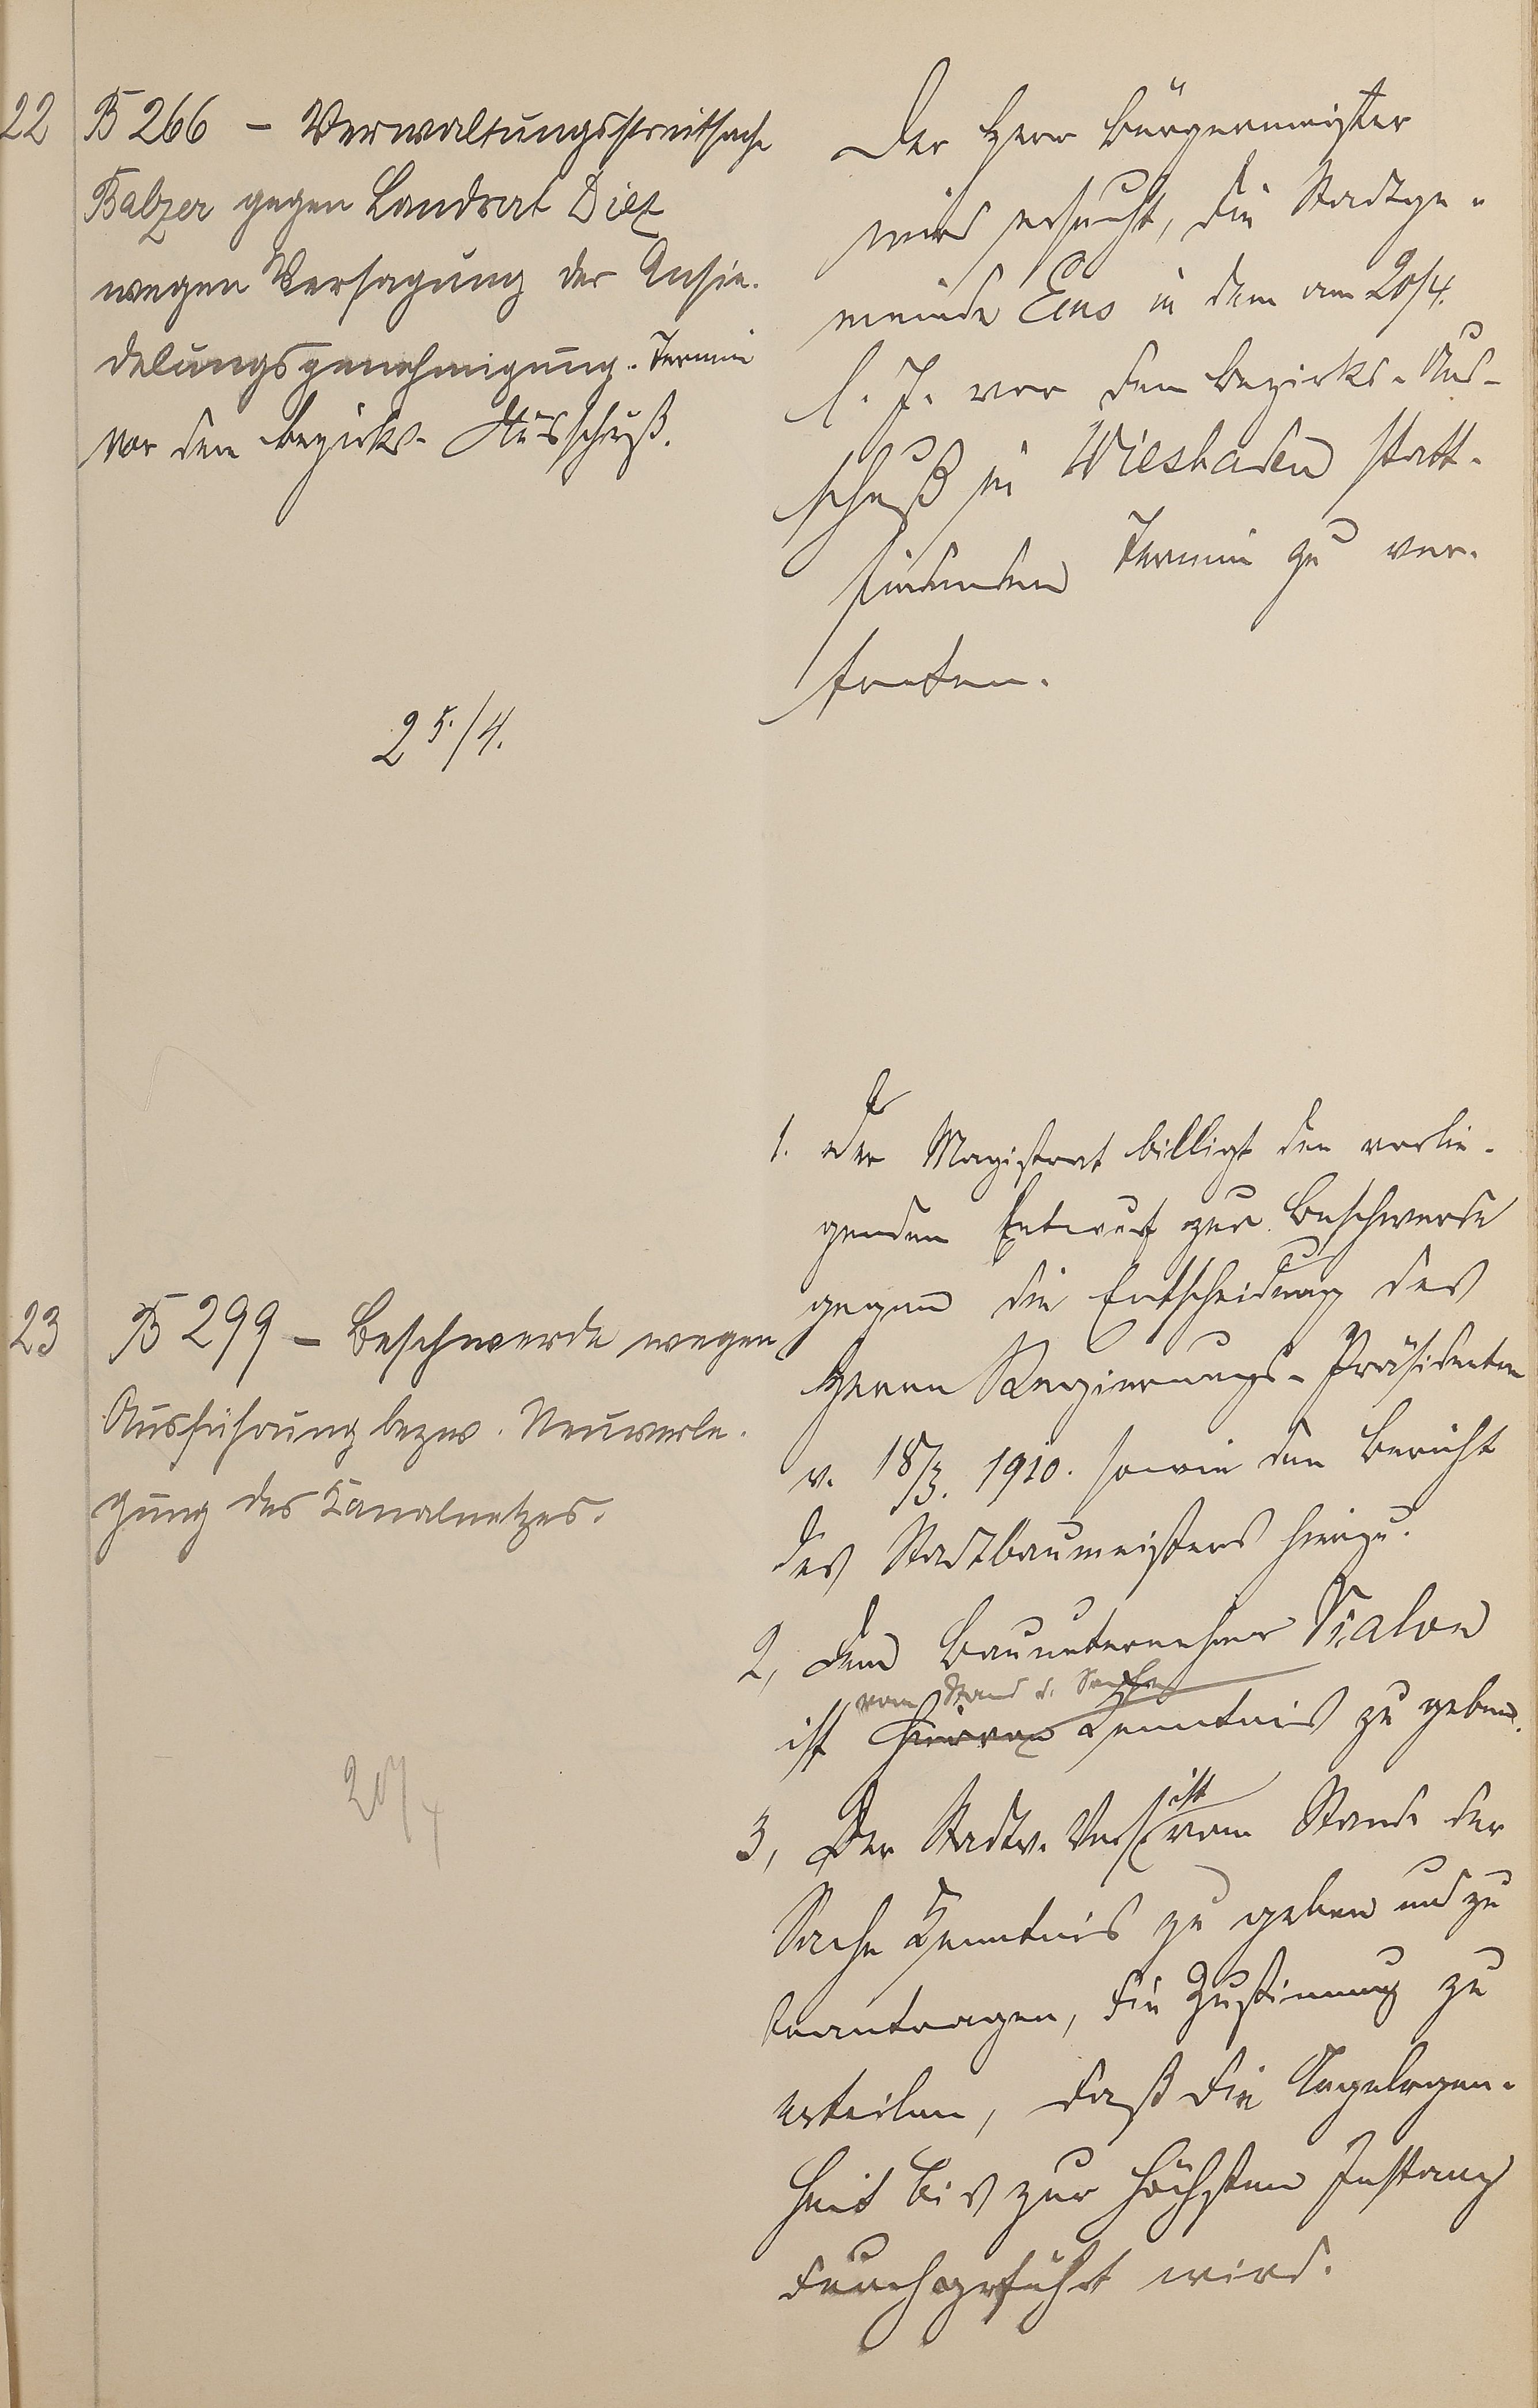 22
B 266 – Verwaltungsstreitsache
Balzer gegen Landrat Diez
wegen Versagung der Ansie-
delungsgenehmigung. Termin
vor dem Bezirks-Ausschuß.
25./4.
Der Herr Bürgermeister
wird ersucht, die Stadtge-
meinde Ems in dem am 20/4.
l. J. vor dem Bezirks-Aus-
schuß in Wiesbaden statt-
findenden Termin zu ver-
treten.
23
B 299 – Beschwerde wegen
Ausführung bezw. Neuverle-
gung des Kanalnetzes.
20/4
1. Der Magistrat billigt den vorlie-
genden Entwurf zur Beschwerde
gegen die Entscheidung des
Herrn Regierungs-Präsidenten
v. 18/3. 1910. sowie den Bericht
des Stadtbaumeisters hierzu.
2, Dem Bauunternehmer Vialon
vom Stand d. Sache
ist hiervon Kenntnis zu geben.
3, Der Stadtv. Vers. ist vom Stande der
Sache Kenntnis zu geben und zu
beantragen, die Zustimmung zu
erteilen, daß die Angelegen-
heit bis zur höchsten Instanz
durchgeführt wird.